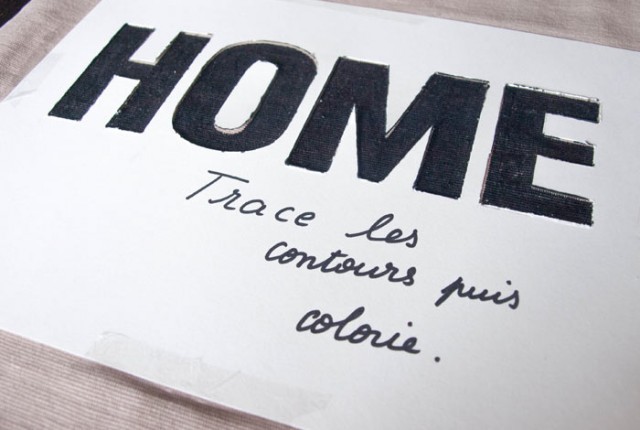 HOME
Trace les
contours puis
colorie.